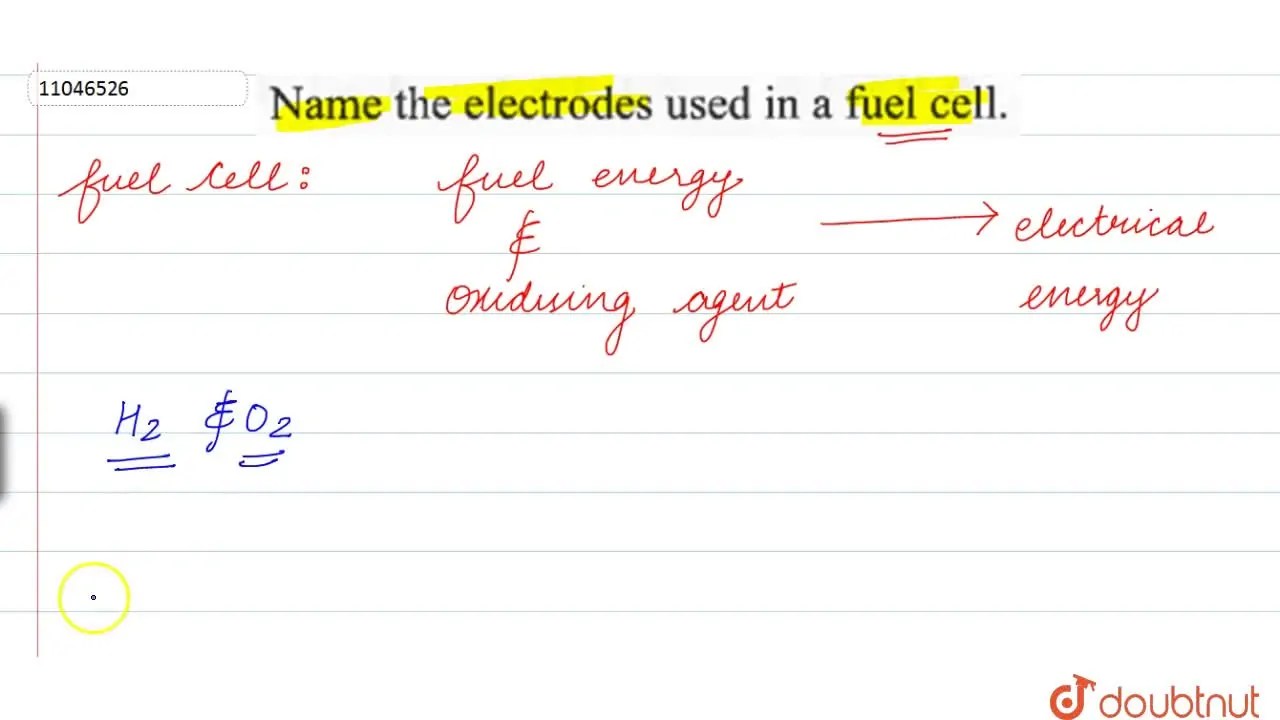 11046526
Name the electrodes used in a fuel cell.
fuel cell: fuel energy
& → electrical
oxidising agent energy
H2 & O2
doubtnut